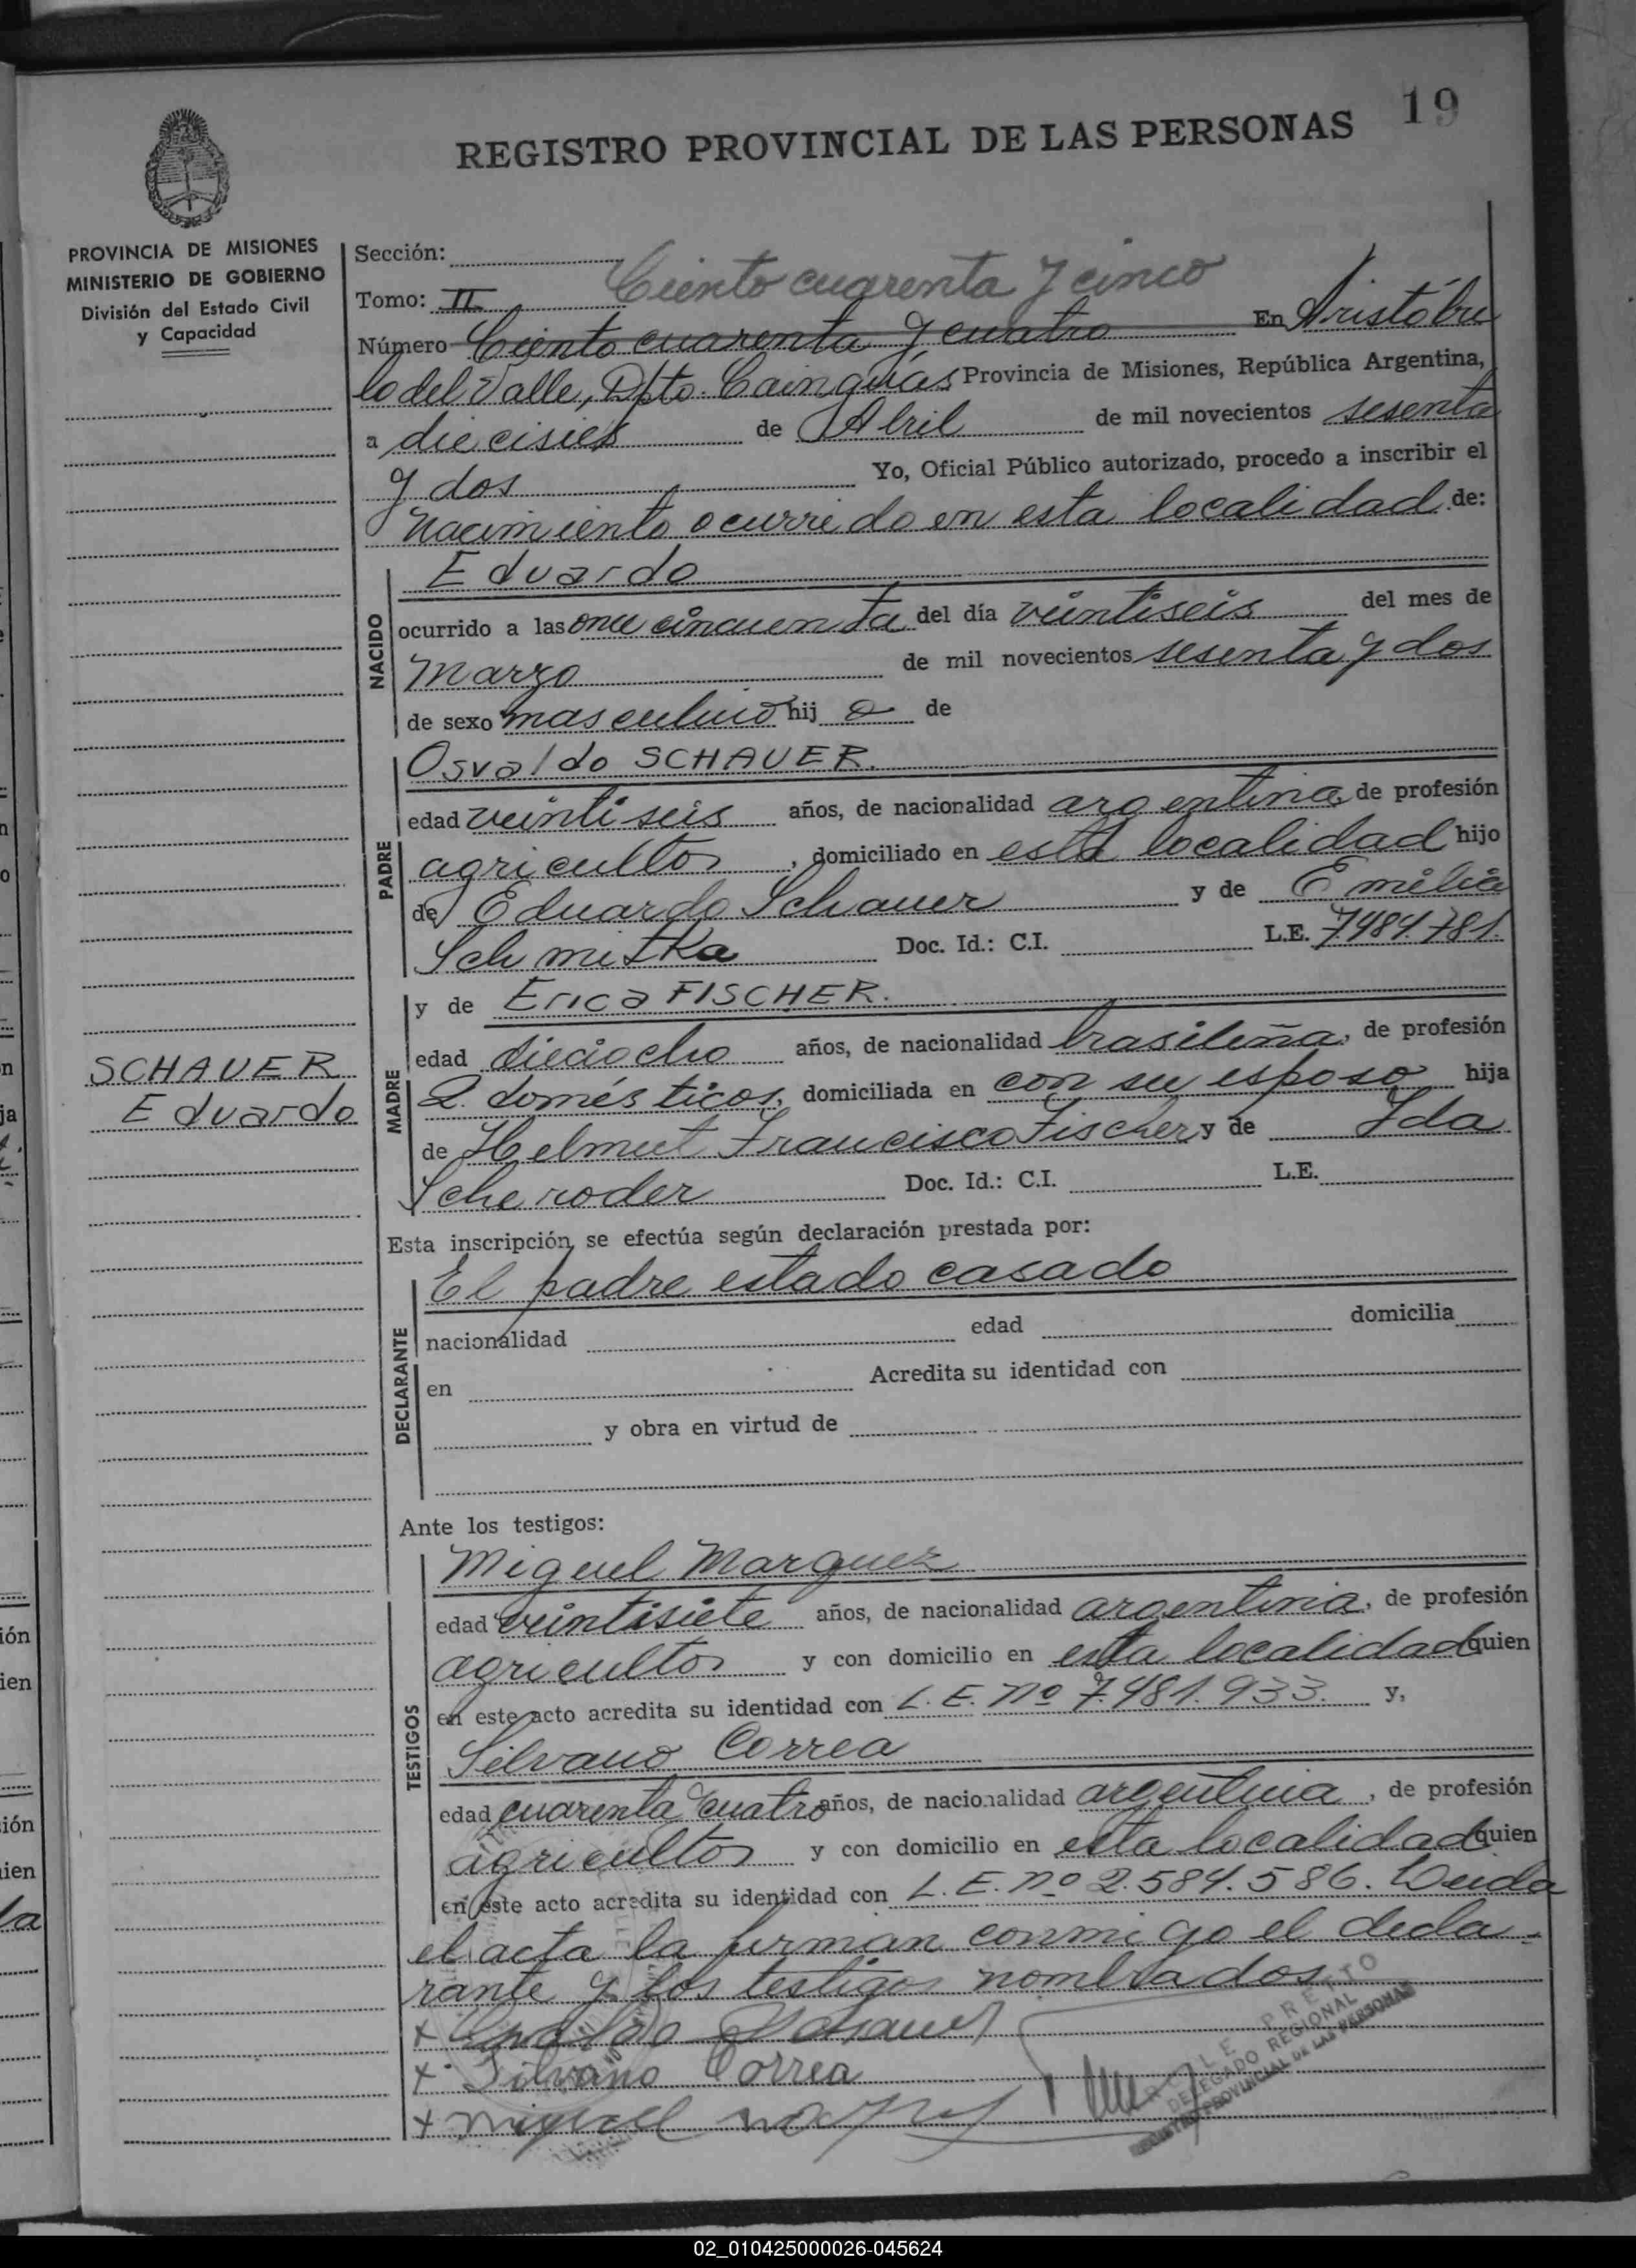 19
REGISTRO PROVINCIAL DE LAS PERSONAS
PROVINCIA DE MISIONES
MINISTERIO DE GOBIERNO
División del Estado Civil
y Capacidad
SCHAUER
Eduardo
Sección:
Ciento cuarenta y cinco
Tomo: II
Número Ciento cuarenta y cuatro En Aristóbu
lo del Valle, Dpto. Cainguás Provincia de Misiones, República Argentina,
a diecisiete de Abril de mil novecientos sesenta
y dos Yo, Oficial Público autorizado, procedo a inscribir el
nacimiento ocurrido en esta localidad de:
NACIDO
Eduardo
ocurrido a las once cincuenta del día veintiseis del mes de
Marzo de mil novecientos sesenta y dos
de sexo masculino hij o de
PADRE
Osvaldo SCHAUER.
edad veintiseis años, de nacionalidad argentina, de profesión
agricultor, domiciliado en esta localidad hijo
de Eduardo Schauer y de Emilia
Schmitka Doc. Id.: C.I. L.E. 7484.781.
MADRE
y de Erica FISCHER.
edad dieciocho años, de nacionalidad brasileña, de profesión
Q. domésticos, domiciliada en con su esposo hija
de Helmut Francisco Fischer y de Ida
Scheroder Doc. Id.: C.I. L.E.
Esta inscripción se efectúa según declaración prestada por:
DECLARANTE
El padre estado casado
nacionalidad edad domicilia
en Acredita su identidad con
y obra en virtud de
Ante los testigos:
TESTIGOS
Miguel Marquez
edad veintisiete años, de nacionalidad argentina, de profesión
agricultor y con domicilio en esta localidad quien
en este acto acredita su identidad con L.E. nº 7.481.933. y,
Silvano Correa
edad cuarenta cuatro años, de nacionalidad argentina, de profesión
agricultor y con domicilio en esta localidad quien
en este acto acredita su identidad con L.E. nº 2.584.586. Leida
el acta la firman conmigo el decla-
rante y los testigos nombrados
x
x Silvano Correa
x Miguel
PRETO
DELEGADO REGIONAL
PROVINCIAL DE LAS PERSONAS
02_010425000026-045624